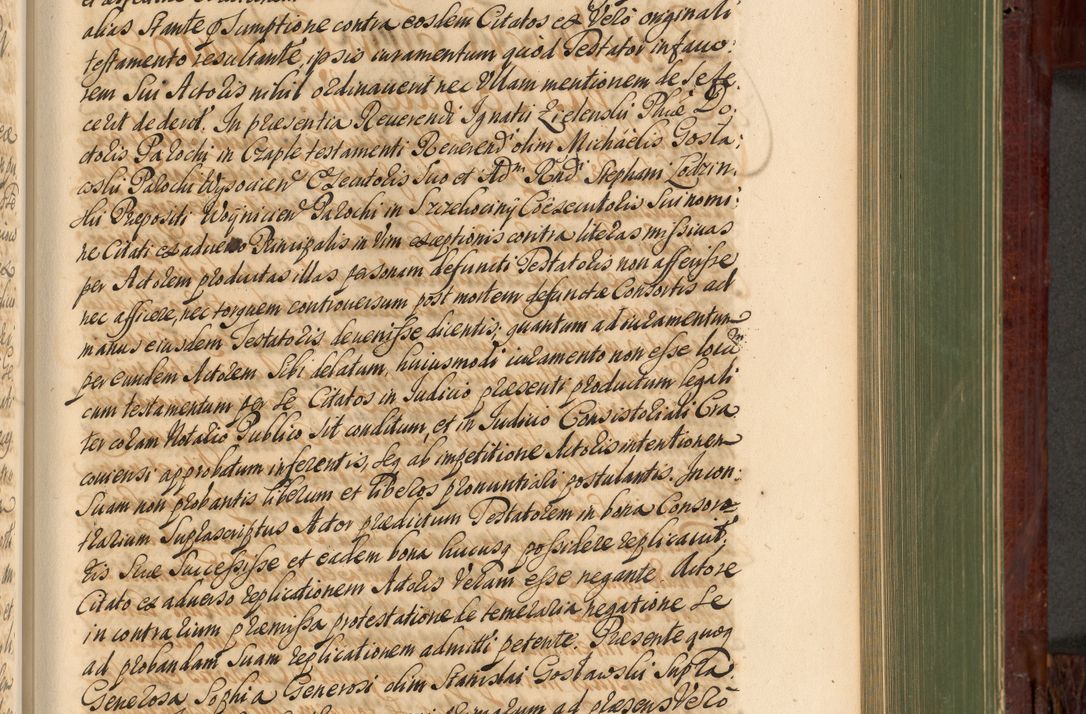 alias stante psumptione contra eosdem Citatos ex Vero originali
testamento resultante, ipsis iuramentum quod Testator in fauo:
rem Sui Actoris nihil ordinauerit nec Vllam mentionem de se fe.
cerit dederit. In præsentia Reuerendi Ignatii Zielenslii Phiæ Do:
ctoris Parochi in Czaple testamenti Reverendi olim Michaelis Gosla:
wslii Parochi Wysocien Executoris suo et Adm Rndi Stephani Lodzin:
slii Præpositi Woynicien Parochi in Szczekociny Coexecutoris Sui nomi:
ne Citati ex aduerso Principalis in Vim exceptionis contra literas missiuas
per Actorem productas illas personam defuncti Testatoris non affecisse
nec afficere, nec torquem controuersum post mortem defunctæ Consortis ad
manus eiusdem Testatoris deuenisse dicentis; quantum ad iuramentum
per eundem Actorem Sibi delatum, huiusmodi iuramento non esse locum
cum testamentum per Se Citatos in Iudicio præsenti productum legali
ter coram Notario Publico sit conditum, et in Iudicio Consistoriali Cra
couiensi approbatum inferentis, seq ab impetitione Actoris intentionem
Suam non probantis liberum et liberos pronuntiari postulantis. In con:
trarium Suprascriptus Actor prædictum Testatorem in bona Consor
tis Suæ Successisse et eadem bona hucusq possidere replicauit;
Citato ex aduerso replicationem Actoris Veram esse negante. Actore
in contrarium præmissa protestatione de temeraria negatione Se
ad probandam Suam replicationem admitti petente. Præsente quoq
Generosa Sophia Generosi olim Stanislai Goslawslii Supta
ad præsens Vero